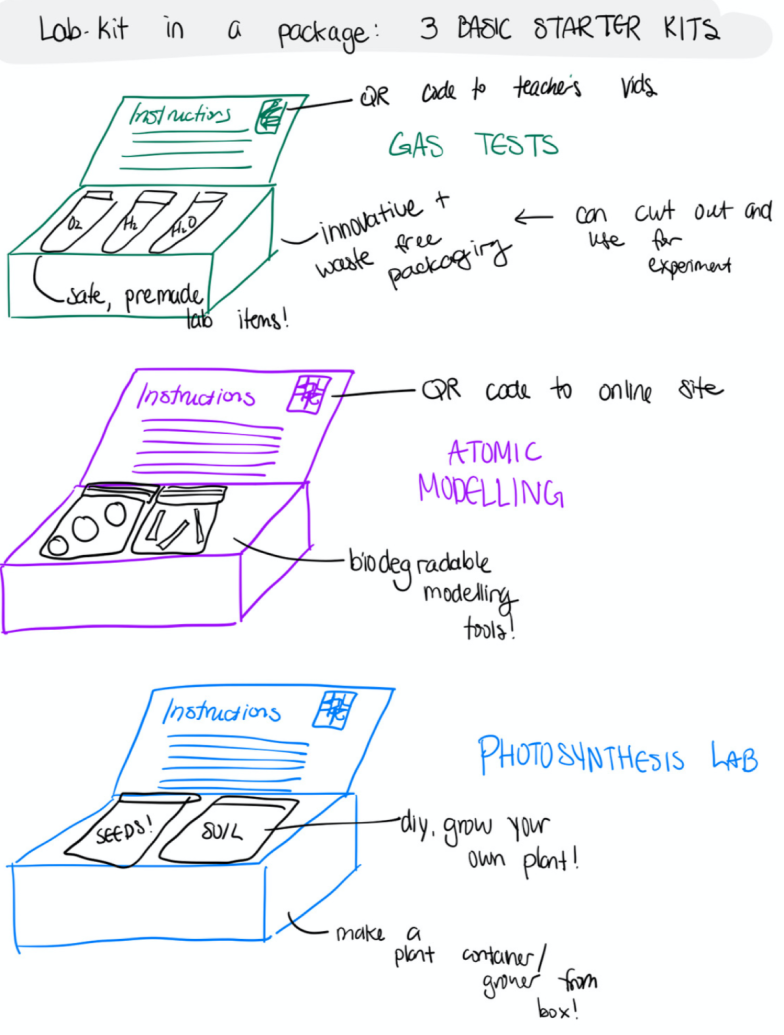 Lab-kit in a package: 3 BASIC STARTER KITS
Instructions
QR code to teacher's vids
GAS TESTS
O2
H2
H2O
innovative +
waste free
packaging
← can cut out and
use for
experiment
safe, premade
lab items!
Instructions
QR code to online site
ATOMIC
MODELLING
biodegradable
modelling
tools!
Instructions
PHOTOSYNTHESIS LAB
SEEDS!
SOIL
diy, grow your
own plant!
make a
plant container/
grower from
box!